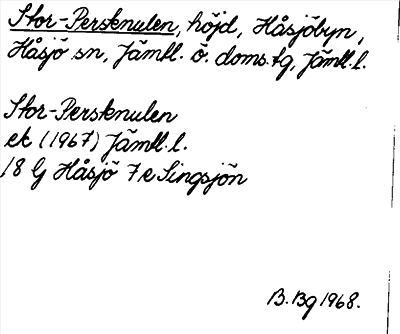 Stor-Persknulen, höjd, Håsjöbyn,
Håsjö sn, Jämtl. ö. doms.tg, Jämtl.l.
Stor-Persknulen
ek (1967) Jämtl.l.
18 G Håsjö 7 e Singsjön
B.Bg 1968.